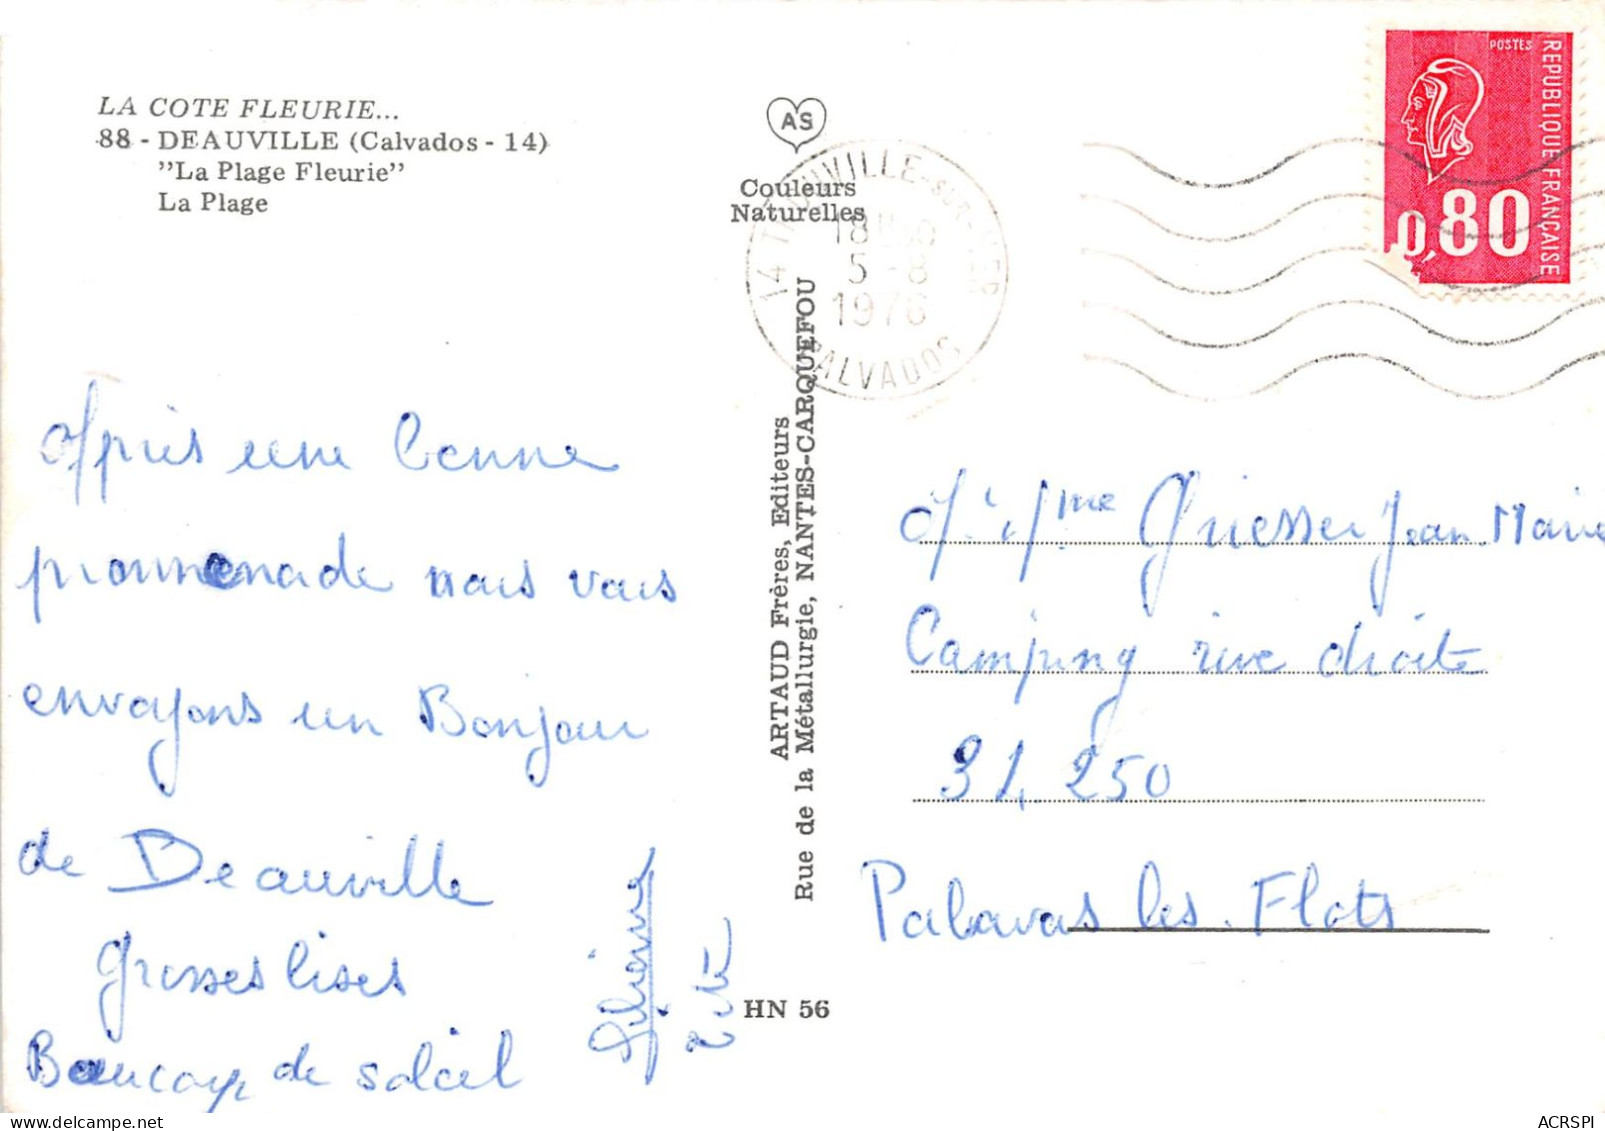 LA COTE FLEURIE...
88 - DEAUVILLE (Calvados - 14)
"La Plage Fleurie"
La Plage
AS
Couleurs
Naturelles
14 TROUVILLE-SUR-MER
18H
5-8
1976
CALVADOS
POSTES
REPUBLIQUE FRANÇAISE
0,80
Après une bonne
promenade nous vous
envoyons un Bonjour
de Deauville
Grosses bises
Beaucoup de soleil
ARTAUD Frères, Editeurs
Rue de la Métallurgie, NANTES-CARQUEFOU
HN 56
Mme Griesser Jean Marie
Camping rive droite
34 250
Palavas les Flots
ACRSPI